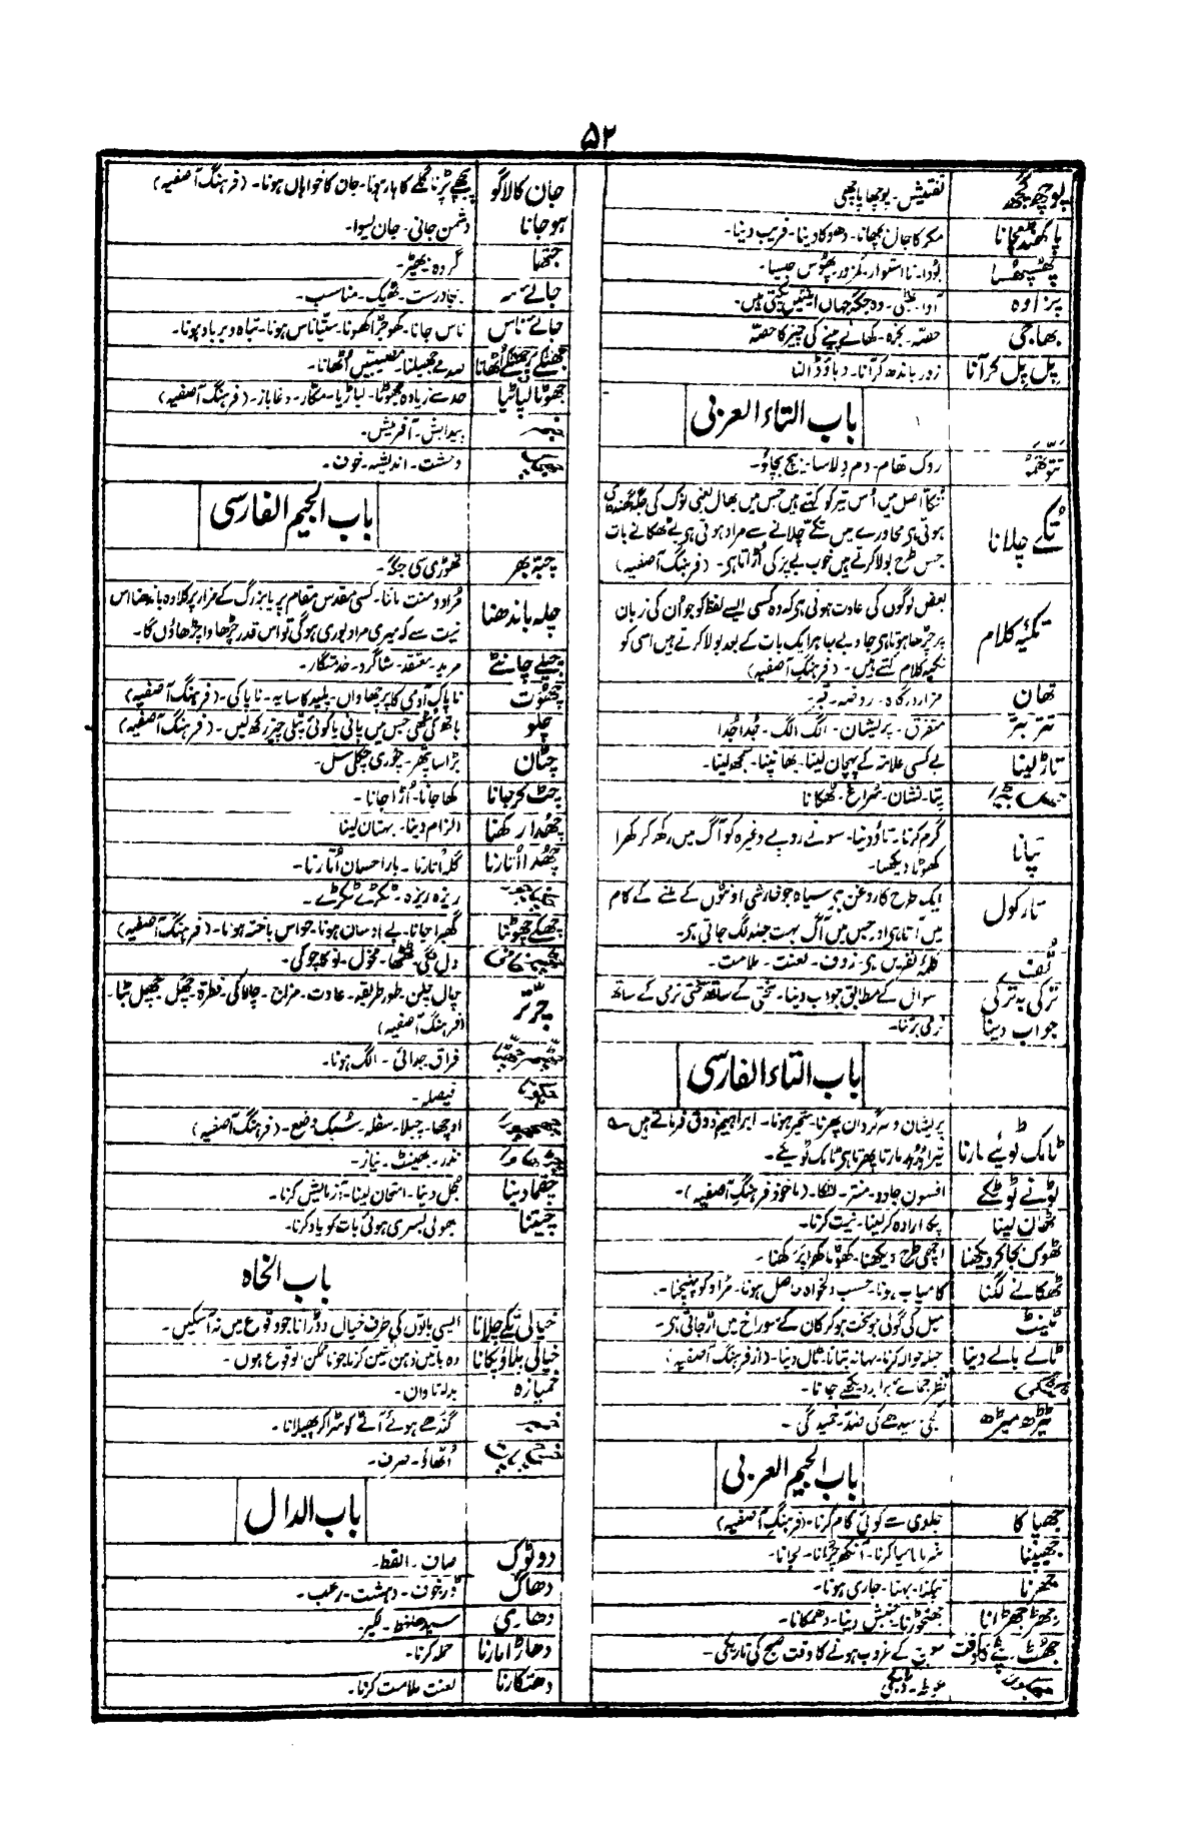 ۵۲
پوچھ گچھ تفتیش۔ پوچھا پاچھی
پاکھنڈ مچانا مکر کا جال بچھانا۔ دھوکا دینا۔ فریب دینا۔
پھُسپھُسا بودا۔ نا استوار۔ کمزور۔ پھوس جیسا۔
پزاوہ آوا۔ بھٹی۔ وہ جگہ جہاں اینٹیں پکتی ہیں۔
بھاجی حصّہ۔ بخرہ۔ کھانے پینے کی چیز کا حصّہ
پِل پِل کر آنا زور باندھ کر آنا۔ دباؤ ڈالنا
باب التاء العربی
روک تھام۔ دم دلاسا۔ بیچ بچاؤ۔
تُکّے چلانا تُکّا اصل میں اُس تیر کو کہتے ہیں جس میں بھال یعنی نوک کی جگہ گھنڈی
ہوتی ہی محاورے میں تکّے چلانے سے مراد ہوتی ہی بے ٹھکانے بات
جس طرح بولا کرتے ہیں خوب بے پر کی اُڑاتا ہی۔ (فرہنگ آصفیہ)
تکیۂ کلام بعض لوگوں کی عادت ہوتی ہی کہ وہ کسی ایسے لفظ کو جو اُن کی زبان
پر چڑھا ہوتا ہی جا و بے جا ہر ایک بات کے بعد بولا کرتے ہیں اسی کو
تکیہ کلام کہتے ہیں۔ (فرہنگ آصفیہ)
تھان مزار۔ درگاہ۔ روضہ۔ قبر۔
تتر بتر متفرق۔ پریشان۔ الگ الگ۔ جُدا جُدا
تاڑ لینا بے کسی علامت کے پہچان لینا۔ بھانپنا۔ سمجھ لینا۔
پتا۔ نشان۔ سُراغ۔ ٹھکانا
تپانا گرم کرنا۔ تاؤ دینا۔ سونے روپے وغیرہ کو آگ میں رکھ کر کھرا
کھوٹا دیکھنا۔
تارکول ایک طرح کا روغن ہی سیاہ جو خارشی اونٹوں کے ملنے کے کام
میں آتا ہی اور جس میں آگ بہت جلد لگ جاتی ہی۔
تُف کلمۂ نفریں ہی۔ زوف۔ لعنت۔ ملامت۔
ترکی بہ ترکی سوال کے مطابق جواب دینا۔ سختی کے ساتھ سختی نرمی کے ساتھ
جواب دینا نرمی برتنا۔
باب التاء الفارسی
ٹامک ٹوئیے مارنا پریشان و سرگرداں پھرنا۔ متحیر ہونا۔ ابراہیم ذوق فرماتے ہیں ؎
مارتا پھرتا ہی ٹامک ٹوئیے۔
ٹونے ٹوٹکے افسون جادو۔ منتر۔ لٹکا۔ (ماخوذ فرہنگ آصفیہ)۔
ٹھان لینا پکا ارادہ کر لینا۔ نیت کرنا۔
ٹھوک بجا کر دیکھنا اچھی طرح دیکھنا۔ کھوٹا کھرا پرکھنا۔
ٹھکانے لگنا کامیاب ہونا۔ حسب دلخواہ حاصل ہونا۔ مُراد کو پہنچنا۔
ٹینٹ میل کی گولی جو سخت ہو کر کان کے سوراخ میں اڑ جاتی ہی۔
ٹالے بالے دینا حیلہ حوالہ کرنا۔ بہانہ بتانا۔ ٹال دینا۔ (از فرہنگ آصفیہ)
نظر جمائے برابر دیکھے جانا۔
ٹیڑھ میڑھ کجی سیدھے کی ضد۔ خمیدگی۔
باب الجیم العربی
جھپاکا جلدی سے کوئی کام کرنا۔ (فرہنگ آصفیہ)
جھینپنا شرمانا حیا کرنا۔ آنکھ چُرانا۔ لجانا۔
جھرنا ٹپکنا۔ بہنا۔ جاری ہونا۔
جھڑجھڑانا جھنجھوڑنا۔ جنبش دینا۔ دھمکانا۔
جھٹ پٹے کا وقت سورج کے غروب ہونے کا وقت صبح کی تاریکی۔
غوطہ۔ ڈُبکی
جان کا لاگو پیچھے پڑنا گلے کا ہار ہونا۔ جان کا خواہاں ہونا۔ (فرہنگ آصفیہ)
ہو جانا دشمن جانی۔ جان لیوا۔
جتھا گروہ۔ بھیڑ۔
جائے سے بجا۔ درست۔ ٹھیک۔ مناسب۔
جائے ناس ناس جانا۔ کھوجڑا کھونا۔ ستیاناس ہونا۔ تباہ و برباد ہونا۔
جھٹکے پھٹکے اُٹھانا صدمے جھیلنا۔ مصیبتیں اُٹھانا۔
جھوٹا لپاٹیا حد سے زیادہ جھوٹا۔ لباڑیا۔ مکّار۔ دغاباز۔ (فرہنگ آصفیہ)
پیدایش۔ آفرینش۔
وحشت۔ اندیشہ۔ خوف۔
باب الجیم الفارسی
چپّہ بھر تھوڑی سی جگہ۔
چلہ باندھنا مُراد و منت ماننا۔ کسی مقدس مقام پر یا بزرگ کے مزار پر کلاوہ باندھنا اس
نیت سے کہ میری مراد پوری ہو گی تو اس قدر چڑھاوا چڑھاؤں گا۔
چیلے چانٹے مرید۔ معتقد۔ شاگرد۔ خدمتگار۔
چھُوت ناپاک آدمی کا پرچھاواں۔ پلید کا سایہ۔ ناپاکی۔ (فرہنگ آصفیہ)
چلّو ہاتھ کی مٹھی جس میں پانی یا کوئی پتلی چیز رکھ لیں۔ (فرہنگ آصفیہ)
چٹان بڑا سا پتھر۔ چوڑی چکلی سل۔
چٹ کر جانا کھا جانا۔ اُڑا جانا۔
چھُدا رکھنا الزام دینا۔ بہتان لینا
چھُدا اُتارنا گلہ اُتارنا۔ بار احسان اُتارنا۔
ریزہ ریزہ۔ ٹکڑے ٹکڑے۔
چھکے چھوٹنا گھبرا جانا۔ بے اوسان ہونا۔ حواس باختہ ہونا۔ (فرہنگ آصفیہ)
دل لگی۔ ٹھٹھا۔ مخول۔ نوکا چوکی۔
چرتّر چال چلن۔ طور طریقہ۔ عادت۔ مزاج۔ چالاکی۔ فطرۃ۔
(فرہنگ آصفیہ)
فراق۔ جدائی۔ الگ ہونا۔
فیصلہ۔
چھچھورا اوچھا۔ چھبلا۔ سفلہ۔ سُبک وضع۔ (فرہنگ آصفیہ)
نذر۔ بھینٹ۔ نیاز۔
چقما دینا جُل دینا۔ امتحان لینا۔ آزمایش کرنا۔
چیتنا بھولی بسری ہوئی بات کو یاد کرنا۔
باب الخاء
خیالی تُکے چلانا ایسی باتوں کی طرف خیال دوڑانا جو وقوع میں نہ آسکیں۔
خیالی پلاؤ پکانا وہ باتیں ذہن نشین کرنا جو ناممکن الوقوع ہوں۔
خمیازہ بدلہ تاوان۔
خمیر گندھے ہوئے آٹے کو سڑا کر پھیلانا۔
اُٹھاؤ۔ صرف۔
باب الدال
دو ٹوک صاف۔ القط۔
دھاگ ڈر۔ خوف۔ دہشت۔ رعب۔
دھاری سیدھا خط۔ لکیر۔
دھاڑا مارنا حملہ کرنا۔
دھتکارنا لعنت ملامت کرنا۔